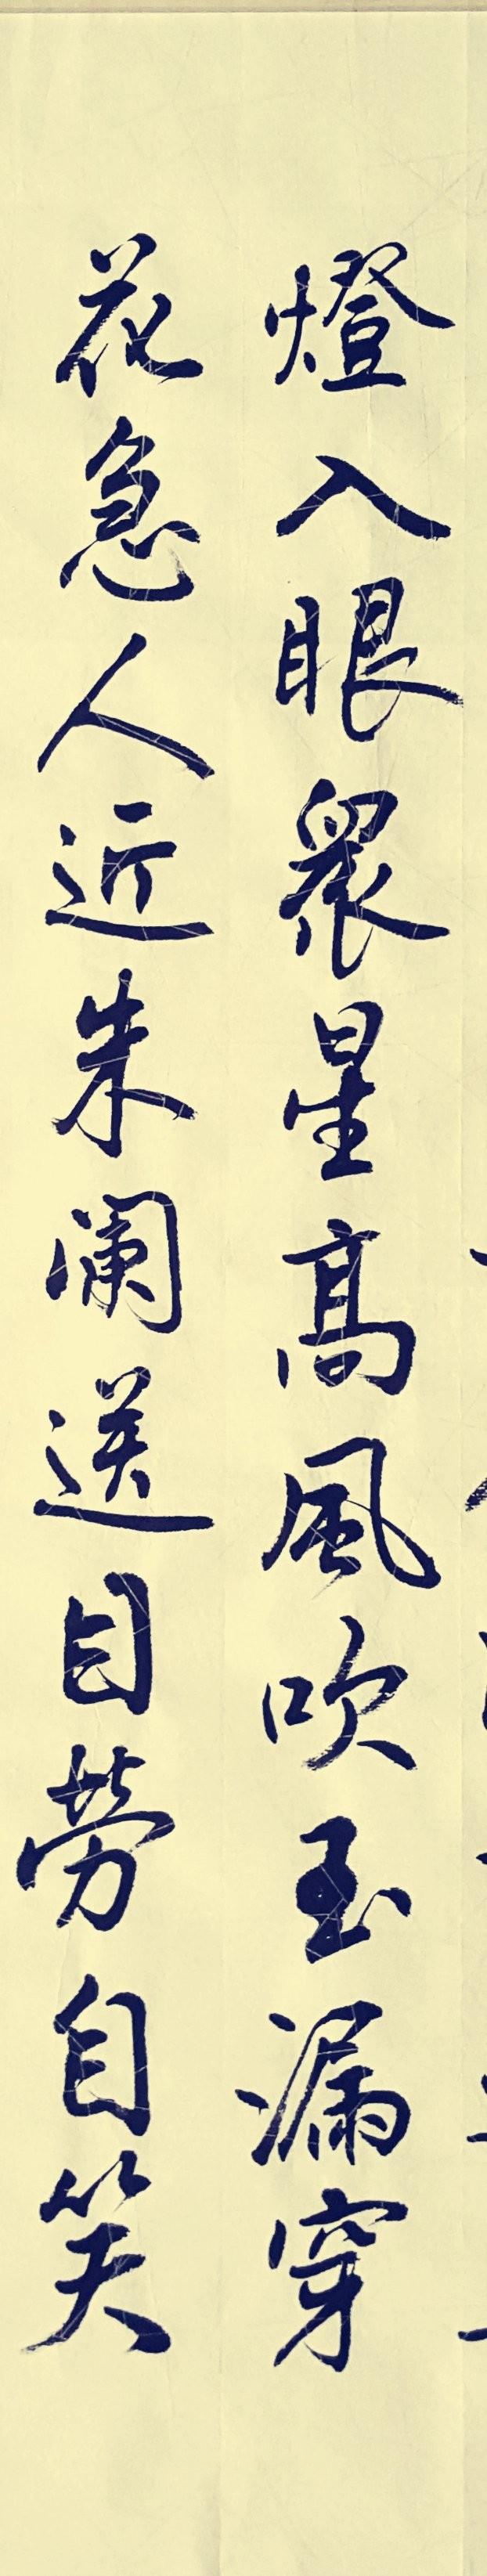 燈入眼衆星高風吹玉漏穿
花急人近朱阑送目劳自笑